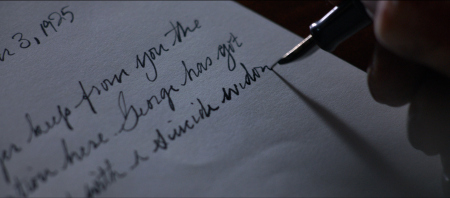 3, 1925
keep from you the
here George has got
with a suicide widow